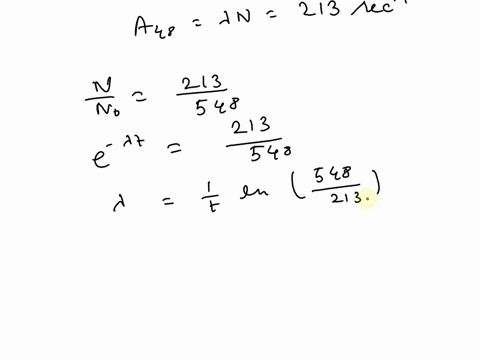 A₄₈ = λN = 213 sec⁻¹
N/N₀ = 213/548
e^-λt = 213/548
λ = 1/t ln (548/213)